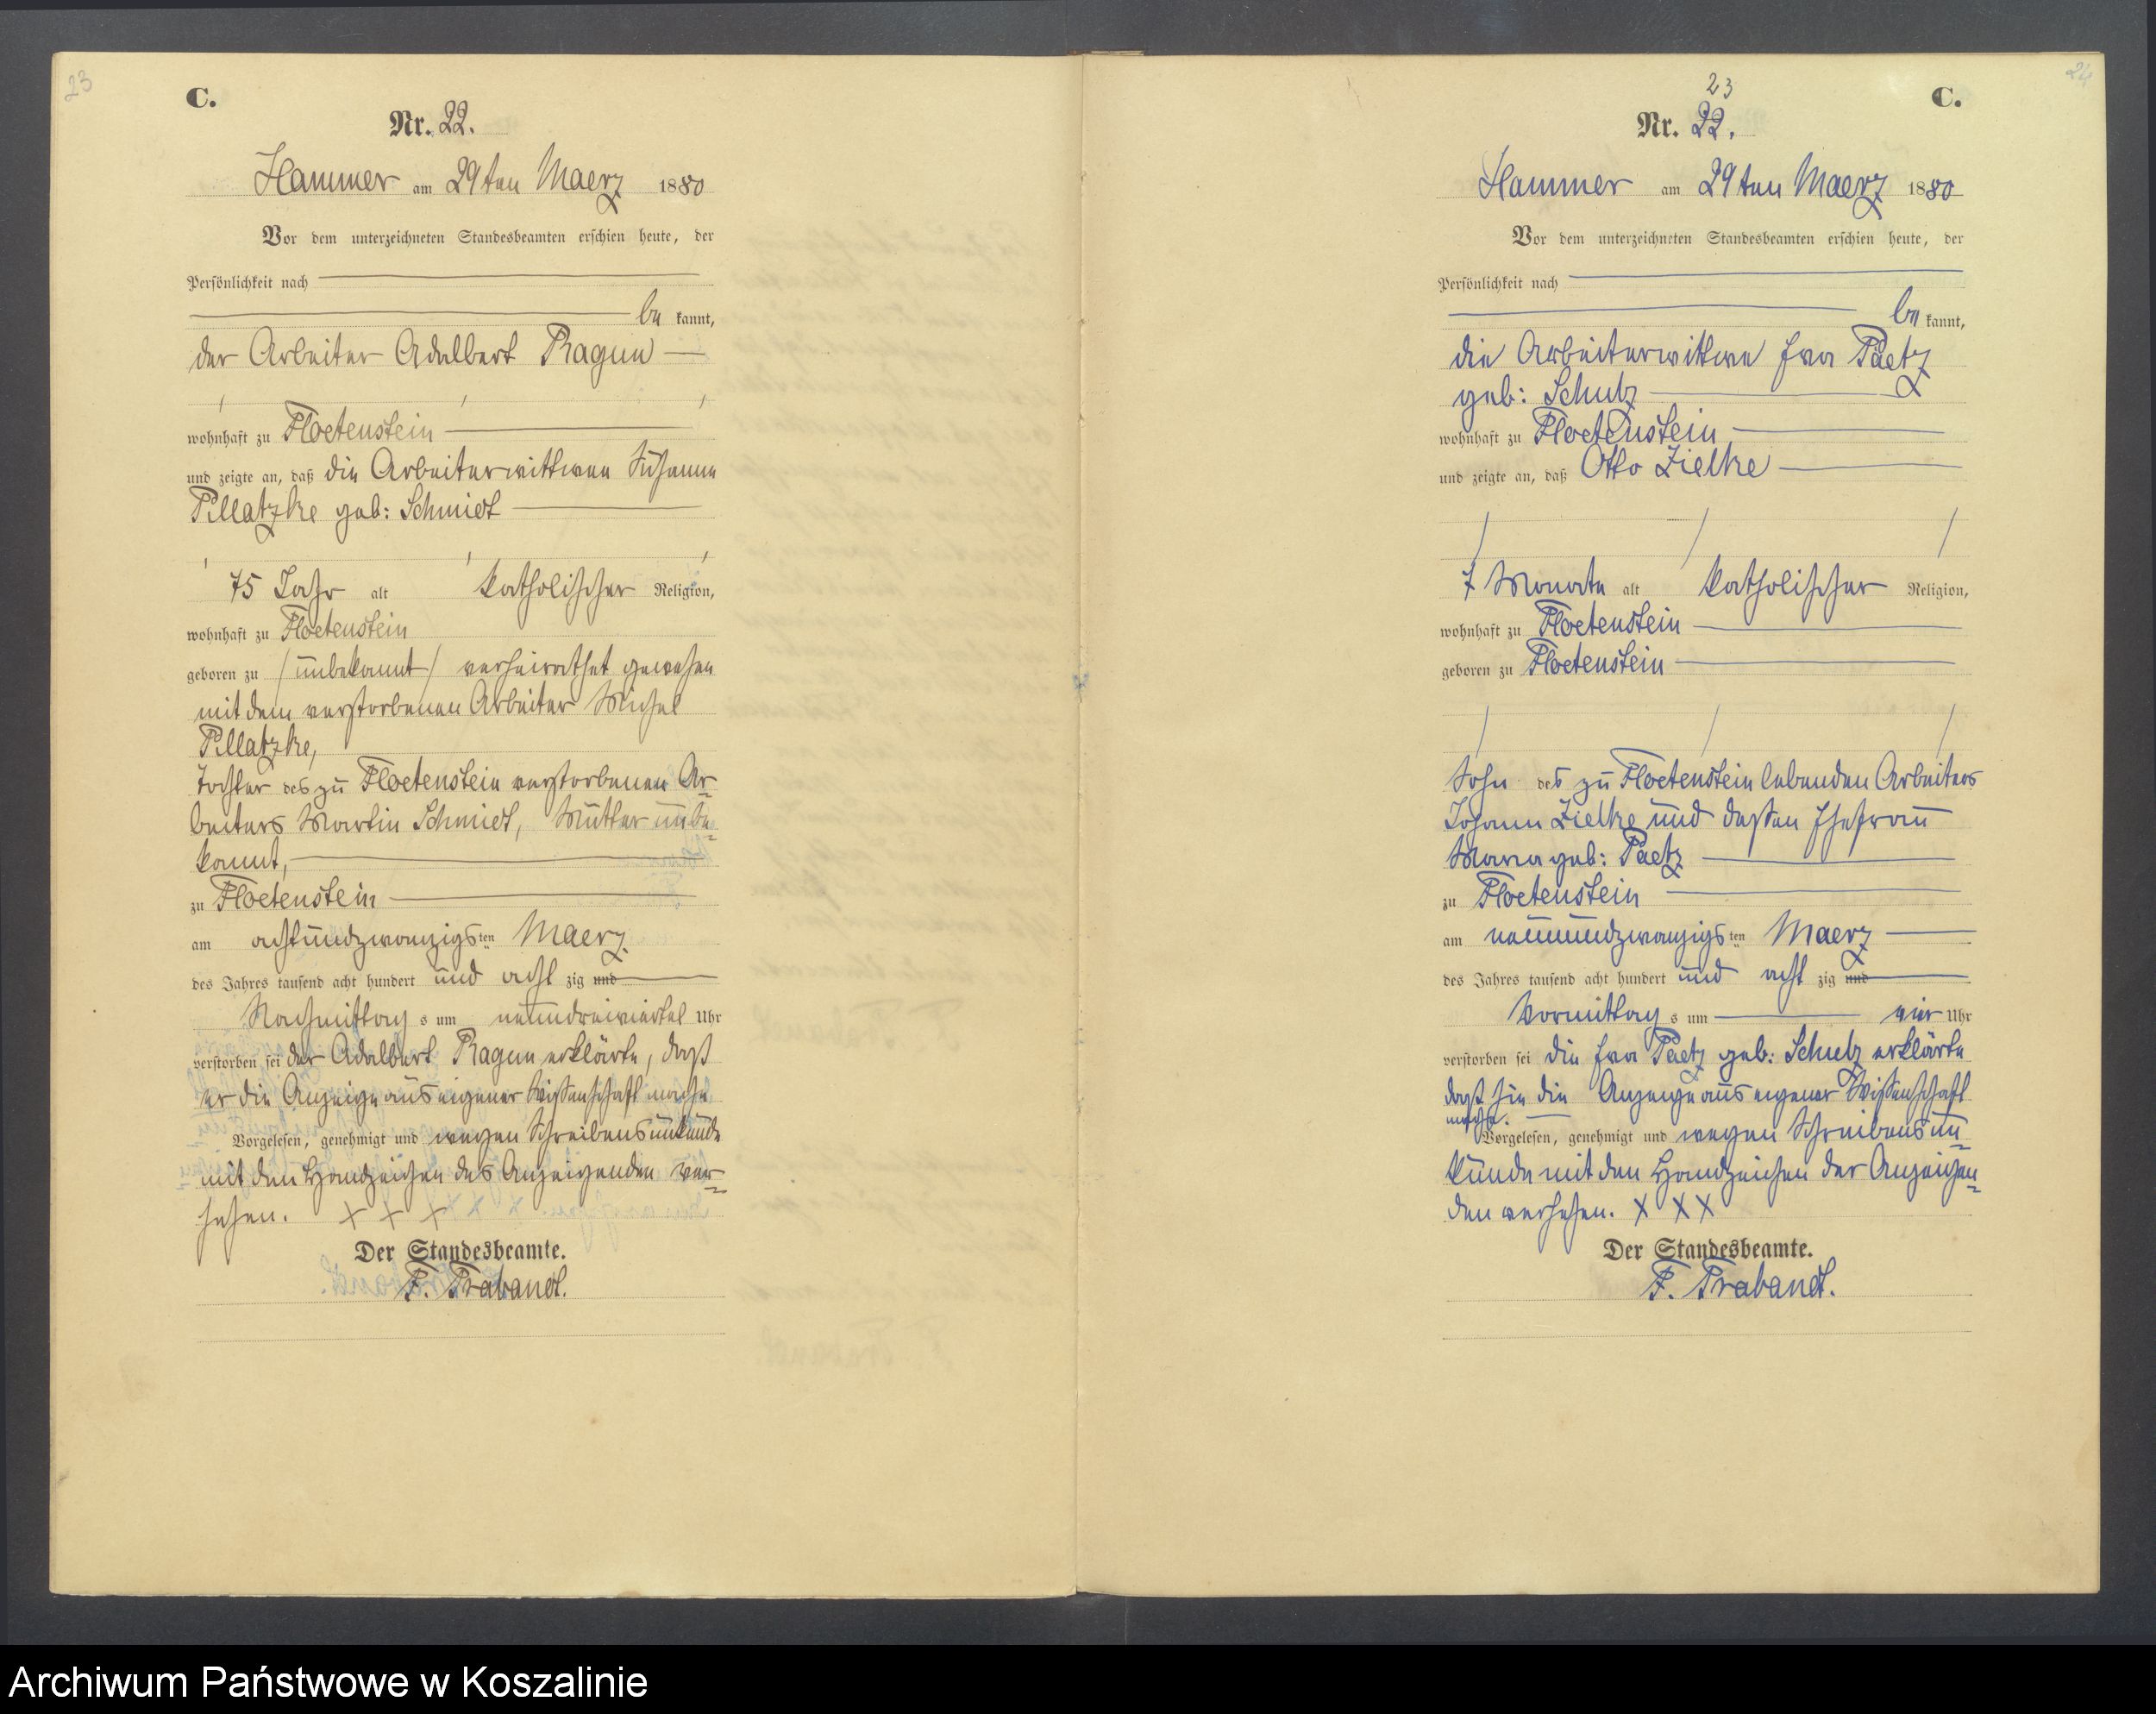 23
C.
Nr. 22.
Hammer am 29ten Maerz 1880
Vor dem unterzeichneten Standesbeamten erschien heute, der
Persönlichkeit nach
be kannt,
der Arbeiter Adalbert Ragun
wohnhaft zu Floetenstein
und zeigte an, daß die Arbeiterwittwe Susanna
Pillatzke geb: Schmidt
75 Jahr alt katholischer Religion,
wohnhaft zu Floetenstein
geboren zu /unbekannt/ verheirathet gewesen
mit dem verstorbenen Arbeiter Michel
Pillatzke,
Tochter des zu Floetenstein verstorbenen Ar-
beiters Martin Schmidt, Mutter unbe-
kannt,
zu Floetenstein
am achtundzwanzigsten Maerz
des Jahres tausend acht hundert und acht zig und
Nachmittag s um neundreiviertel Uhr
verstorben sei der Adalbert Ragun erklärte, daß
er die Anzeige aus eigener Wissenschaft mache
Vorgelesen, genehmigt und wegen Schreibensunkunde
mit den Handzeichen des Anzeigenden ver-
sehen. X X X
Der Standesbeamte.
F. Trabandt.
24
C.
23
Nr. 22.
Hammer am 29ten Maerz 1880
Vor dem unterzeichneten Standesbeamten erschien heute, der
Persönlichkeit nach
be kannt,
die Arbeiterwittwe Eva Paetz
geb: Schulz
wohnhaft zu Floetenstein
und zeigte an, daß Otto Zielke
7 Monate alt katholischer Religion,
wohnhaft zu Floetenstein
geboren zu Floetenstein
Sohn des zu Floetenstein lebenden Arbeiters
Johann Zielke und dessen Ehefrau
Maria geb: Paetz
zu Floetenstein
am neunundzwanzigsten Maerz
des Jahres tausend acht hundert und acht zig und
Vormittag s um vier Uhr
verstorben sei die Eva Paetz geb: Schulz erklärte
daß sie die Anzeige aus eigener Wissenschaft
mache.
Vorgelesen, genehmigt und wegen Schreibensun-
kunde mit den Handzeichen der Anzeigen-
den versehen. X X X
Der Standesbeamte.
F. Trabandt.
Archiwum Państwowe w Koszalinie